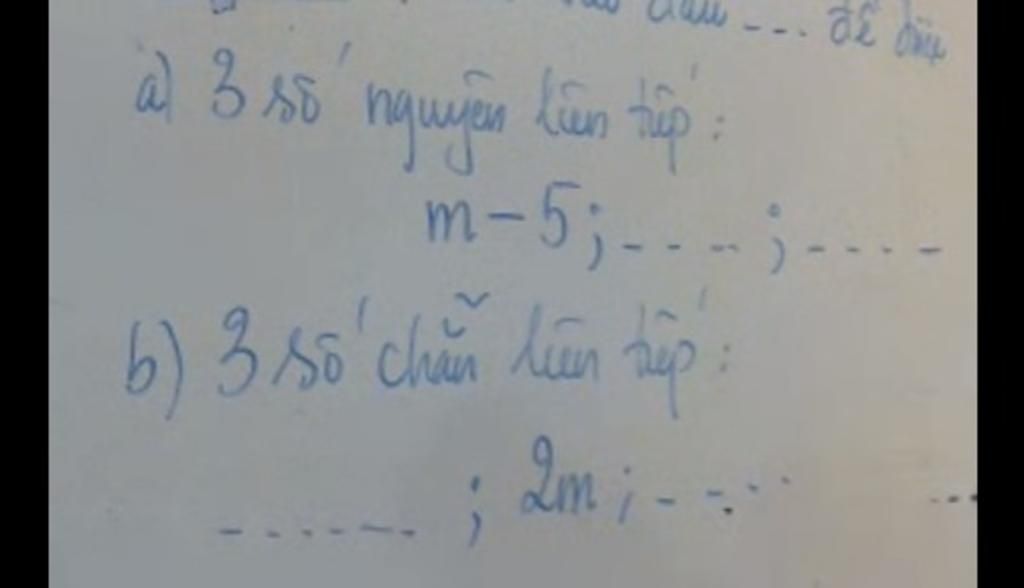 dấu ... để
a) 3 số nguyên liên tiếp:
m - 5; ....; ....
b) 3 số chẵn liên tiếp:
......; 2m; .... ...